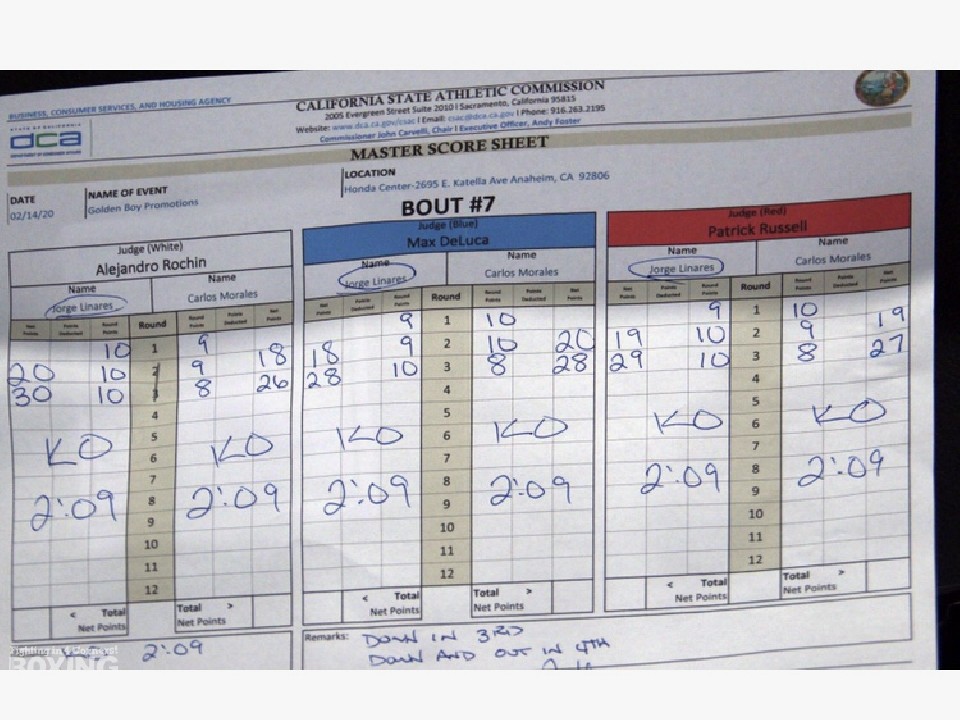 BUSINESS, CONSUMER SERVICES, AND HOUSING AGENCY
STATE OF CALIFORNIA
dca
DEPARTMENT OF CONSUMER AFFAIRS
CALIFORNIA STATE ATHLETIC COMMISSION
2005 Evergreen Street Suite 2010 | Sacramento, California 95815
Website: www.dca.ca.gov/csac | Email: csac@dca.ca.gov | Phone: 916.263.2195
Commissioner John Carvelli, Chair | Executive Officer, Andy Foster
MASTER SCORE SHEET
DATE NAME OF EVENT LOCATION
02/14/20 Golden Boy Promotions Honda Center-2695 E. Katella Ave Anaheim, CA 92806
BOUT #7
Judge (White) Judge (Blue) Judge (Red)
Alejandro Rochin Max DeLuca Patrick Russell
Name Name Name Name Name Name
Jorge Linares Carlos Morales Jorge Linares Carlos Morales Jorge Linares Carlos Morales
Net Points Points Deducted Round Points Round Round Points Points Deducted Net Points Net Points Points Deducted Round Points Round Round Points Points Deducted Net Points Net Points Points Deducted Round Points Round Round Points Points Deducted Net Points
10 1 9 9 1 10 9 1 10
20 10 2 9 18 18 9 2 10 20 19 10 2 9 19
30 10 3 8 26 28 10 3 8 28 29 10 3 8 27
4 4 4
5 5 5
KO 6 KO KO 6 KO KO 6 KO
7 7 7
2:09 8 2:09 2:09 8 2:09 2:09 8 2:09
9 9 9
10 10 10
11 11 11
12 12 12
< Total Total > < Total Total > < Total Total >
Net Points Net Points Net Points Net Points Net Points Net Points
2:09
Remarks: DOWN IN 3RD
DOWN AND OUT IN 4TH
BOXING